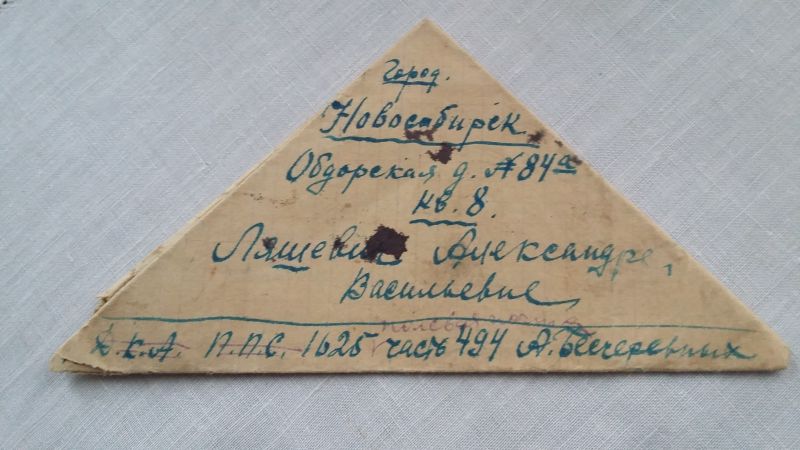 Город.
Новосибирск
Обдорская д. № 84а
кв. 8.
Ляшевич Александре,
Васильевне
полевая почта
Д.К.А. П.П.С. 1625 часть 494 А. Бесчеревных